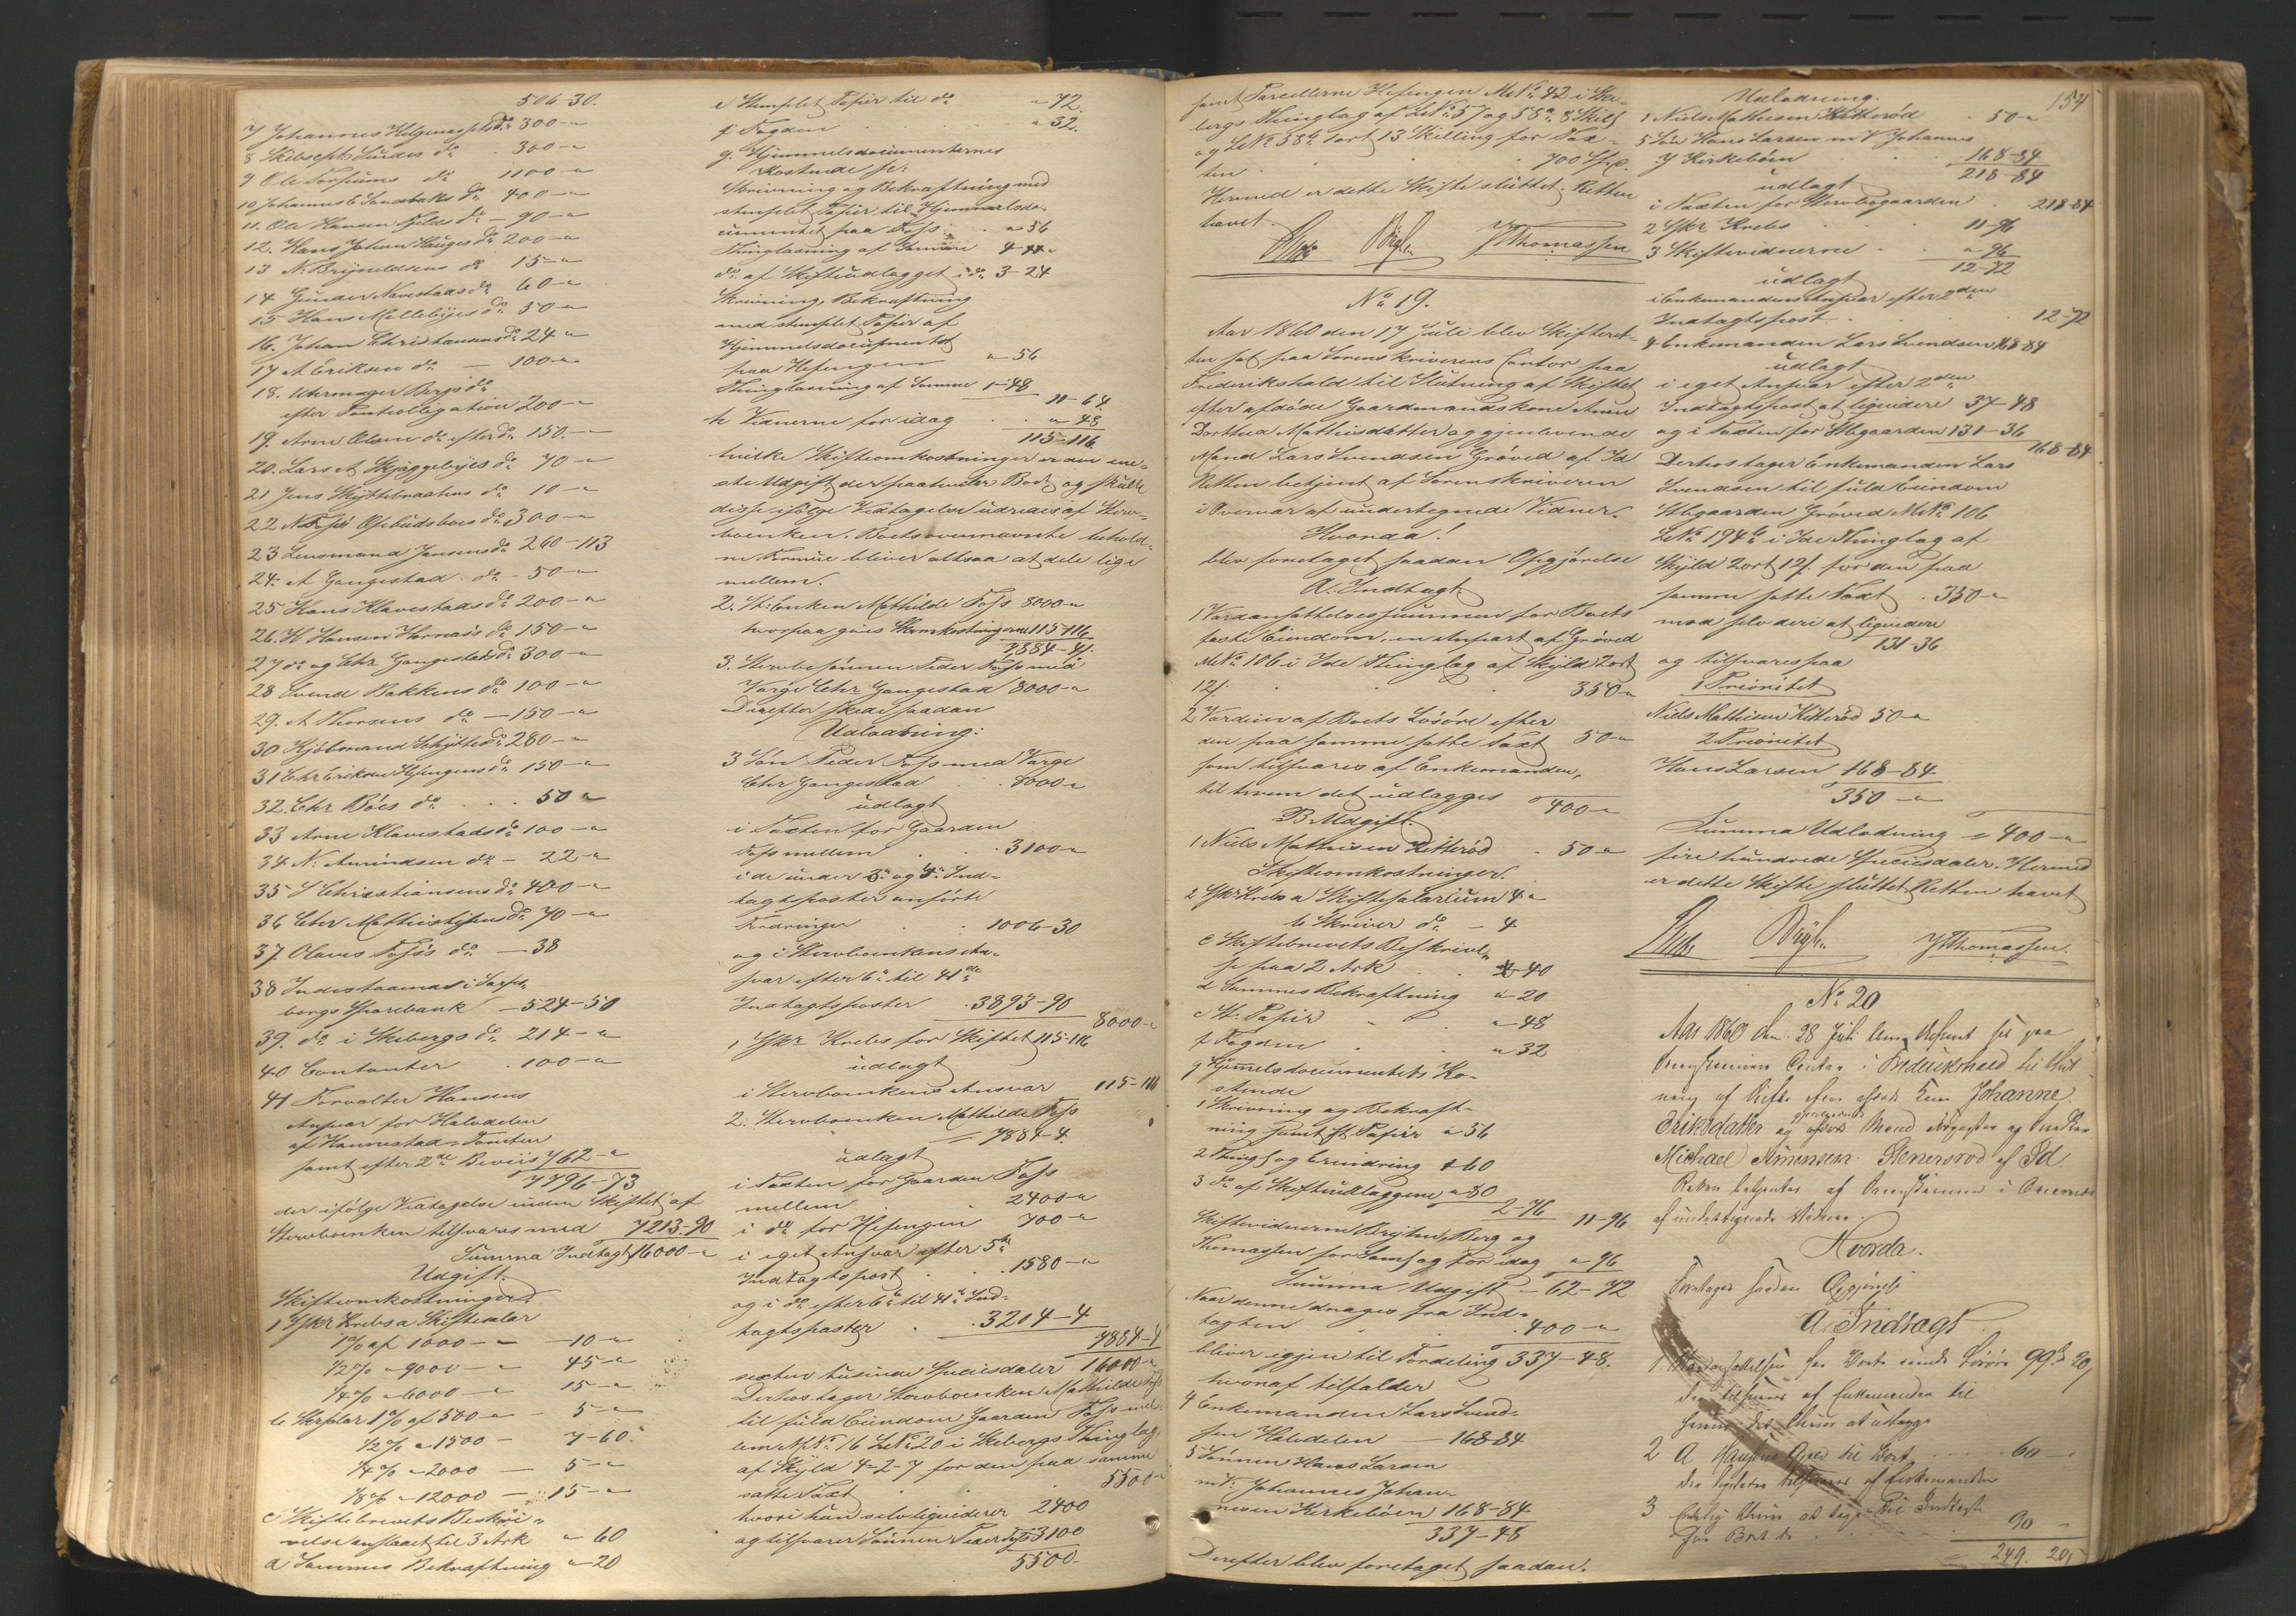 506-30.
7 Johannes Helgenæssets do 300-"
8 Skibsept. Lundes do . 300-"
9 Ole Torpums do 1100-"
10 Johannes C Sandbaks do 400-"
11. Ole Hansen Fjelds do - 90-"
12. Hans Johan Hauges do 200-"
13 N. Brynildsens do 15-"
14 Gunder Navestads do 60-"
15 Hans Mellebyes do 50-"
16. Johan Christiansens do 24-"
17 A Eriksen do - 100-"
18. Uhrmager Bergs do
efter Pantobligation 200-"
19. Arne Olsen do efter do 150.-"
20. Lars A Skjeggebyes do 70-"
21 Jens Skyttelnaatens do 10-"
22 N. Opsundsboes do 300-"
23 Lensmand Jensens do 260-113
24. A Gangestad do - 50-"
25 Hans Klavestads do 200-"
26. H Hansen Hornæs do 150-"
27 do og Chr. Gangestads do 300-"
28 Svend Bakkens do 100-"
29. A Thorsens do -150-"
30 Kjøbmand Schyttes do 280-"
31 Chr Eriksen Hefengens do 150-"
32. Chr Bøes do . . 50-"
33 Arne Klavestads do 100-"
34 N. Amundsen do - 22-"
35 S Christiansens do 400-"
36 Chr Mathistisens do 70-"
37. Olaves Foss do - 38
38 Indestaaende i Sarps-
borgs Sparebank - 524-50
39. do i Skebergs do 214-"
40 Contanter . 100-"
41 Forvalter Hansens
Ansvar for Halvdelen
af Hannestad-Tomten
samt efter 2de Beviis 762-"
7796-73
der ifølge Vedtagelse inden Skiftet af
Stervboenken tilsvares med 7213-90
Summa Indtægt 16000-"
Udgift.
Skifteomkostninger
1 Skr Krebs a Skiftesalar
1% af 1000-" -10-"
1/2% - 9000-" 45-"
1/4% - 6000-" 15-"
b Skrsalar 1% af 500-" - 5-"
1/2% - 1500 - 7-60.
1/4% - 2000 - 5-"
1/8% - 12000 - 15-"
c Skiftebrevets Beskri-
velse anslaaet til 3 Ark " 60
d Sammes Bekræftning "-20
e Stemplet Papir til do "-72
f Fogden . . . "-32.
g. Hjemmelsdocumenternes
Kostende
Skrivning og Bekræftning med
stemplet Papir til Hjemmelsdo-
cumentet paa Foss . "-56
do af Skifteudlægget i do 3-24
Skrivning, Bekræftning
med stemplet Papir af
Hjemmelsdocumentet
paa Hefengen "-56
Thinglæsning af Samme 1-48
11-64.
h Vidnerne for idag . . "-48
115-116
hvilke Skifteomkostninger er den ene-
ste Udgift der paahviler Boet og skulle
disse ifølge Vedtagelse udredes af Sterv-
boenken. Boets ovennævnte behold-
ne Formue bliver altsaa at dele lige
mellem.
2. St: Enken Mathilde Foss 8000-"
hvorpaa gives Skomkostningerne 115-116
7884-4.
3. Stervbosønnen Peder Foss med
Verge Chr Gangestad 8000-"
Derefter skede saadan
Udlodning:
3 Søn Peder Foss med Verge
Chr Gangestad . . 8000-"
udlagt
i Taxten for Gaarden
Foss mellem . . 3100-"
i de under 3. og 4. Ind-
tægtsposter anførte
Fordringer . 1006-30
og i Stervboenkens An-
svar efter 6. til 41de
Indtægtsposter . 3893-90
8000-"
1 Skr Krebs for Skiftet 115-116
udlagt
i Stervboenkens Ansvar 115-116
2. Stervboenken Mathilde Foss
7884-4.
udlagt
i Taxten for Gaarden Foss
mellem . 2400-"
i do for Hefengen 700-"
i eget Ansvar efter 5te
Indtægtspost . . 1580-"
og i do efter 6. til 41. Ind-
tægtsposter . . 3204-4
7884-4
sexten tusinde Speciesdaler 16000-"
Derhos tager Stervboenken Mathilde Foss
til fuld Eiendom Gaarden Foss mel-
lem MNo 16 LNo 20 i Skebergs Thinglag,
af Skyld 4-2-7 for den paa samme
satte Taxt . . 5500-"
hvori hun selv liqviderer 2400
og tilsvarer Sønnen Peder Foss 3100
5500-
samt Parcellerne Hefengen MNo 42 i Ske-
bergs Thinglag af LNo 57 og 58a. 8 Skill
og LNo 38b 1 ort 13 Skilling for Tax-
ten . . . 700 Spd.
Hermed er dette Skifte sluttet. Retten
hævet.
Krebs Bryhn JThomassen
No 19.
Aar 1860 den 17 Juli blev Skifteret-
ten sat paa Sorenskriverens Contor paa
Frederikshald til Slutning af Skiftet
efter afdøde Gaardmandskone Anne
Dorthea Mathisdatter og gjenlevende
Mand Lars Svendsen Grøved af Id
Retten betjent af Sorenskriveren
i Overvær af undertegnede Vidner.
Hvorda!
blev foretaget saadan Opgjørelse
A. Indtægt.
1 Værdansættelsessummen for Boets
faste Eiendom, en Anpart af Grøved
MNo 106 i Ide Thinglag af Skyld 2 ort
12/. . . 350-"
2 Værdien af Boets Løsøre efter
den paa samme satte Taxt 50-"
som tilsvares af Enkemanden,
til hvem det udlægges
400-"
B. Udgift.
1 Niels Mathisen Kitterød . 50-"
Skifteomkostninger.
2 Skr. Krebs a Skiftesalarium 4-"
b Skriver do - 4
c Skiftebrevets Beskrivel-
se paa 2 Ark . . 40
d Sammes Bekræftning "-20
e St: Papir . . "-48
f Fogden . . "-32
g Hjemmelsdocumentets Ko-
stende
1 Skrivning og Bekræft-
ning samt St. Papir "-56
2 Thingl og Erindring "-60
3 do af Skifteudlæggene "-80
2-76 11-96
Skiftevidnerne Bryhn, Berg og
Thomassen for Saml og for idag "-96
Summa Udgift - 62-72
Naar denne drages fra Ind-
tægten . . . 400-"
bliver igjen til Fordeling 337-48.
hvoraf tilfalder
4 Enkemanden Lars Svend-
sen Halvdelen - 168-84
5 Sønnen Hans Larsen
m V. Johannes Johan-
nesen Kirkebøen 168-84
337-48
Derefter blev foretaget saadan.
154
Udlodning.
1 Niels Mathisen Kitterød . 50-"
5 Søn Hans Larsen m V Johannes
J Kirkebøen . . 168-84
218-84
udlagt
i Taxten for Stervbogaarden . 218-84
2 Skr Krebs . . 11-96
3 Skiftevidnerne . . "-96
12-72
udlagt
i Enkemandens Ansvar efter 2den
Indtægtspost . . . 12-72
4 Enkemanden Lars Svendsen 168-84
udlagt
i eget Ansvar efter 2den
Indtægtspost at liqvidere 37-48
og i Taxten for Stbgaarden 131-36
168-84
Derhos tager Enkemanden Lars
Svendsen til fuld Eiendom
Stbgaarden Grøved MNo 106
LNo 194b i Ide Thinglag af
Skyld 2 ort 12/. for den paa
samme satte Taxt . 350-"
mod selv deri at liqvidere
131-36
og tilsvares paa
1 Prioritet
Niels Mathisen Kitterød 50-"
2 Prioritet
Hans Larsen 168-84
350-"
Summa Udlodning = 400-"
fire hundrede Speciesdaler. Hermed
er dette Skifte sluttet Retten hævet
Krebs Bryhn JThomassen.
No 20
Aar 1860 den 28 Juli blev Skifteret sat paa
Sorenskriverens Contor i Frederikshald til Slut-
ning af Skiftet efter afdøde Kone Johanne
Eriksdatter og gjenlevende Mand
Michael Simensen Stenersrød af Id.
Retten betjentes af Sorenskriveren i Overvær
af undertegnede Vidner.
Hvorda.
Foretages saadan Opgjørelse
A. Indtægt
1. Værdansættelsen for Boets Løsøre 99 20,
der tilsvares af Enkemanden til
hvem det bliver at udlægge
2 A Gjeld til Boet . . . 60 -
der tilsvares af Enkemanden
3 Indtægt
for Boet 90 -
249. 20,